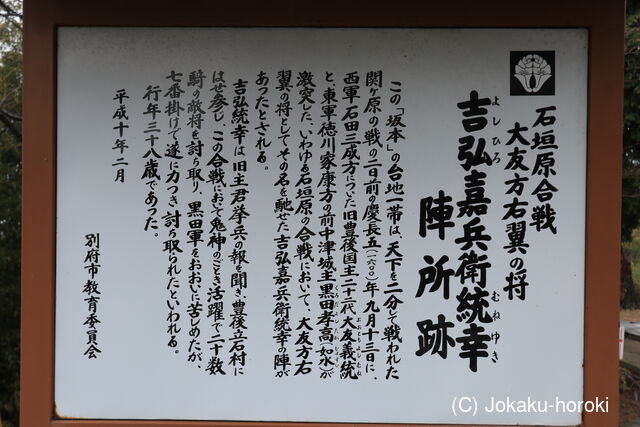 石垣原合戦
大友方右翼の将
吉弘嘉兵衛統幸
よしひろ
むねゆき
陣所跡
この「坂本」の台地一帯は、天下を二分して戦われた
関ヶ原の戦の二日前の慶長五(一六〇〇)年九月十三日に、
西軍石田三成方についた旧豊後国主二十二代大友義統
と東軍徳川家康方の前中津城主黒田孝高(如水)が
激突した、いわゆる石垣原の合戦において、大友方右
翼の将としてその名を馳せた吉弘嘉兵衛統幸の陣が
あったとされる。
吉弘統幸は旧主君挙兵の報を聞き豊後立石村に
はせ参じ、この合戦において鬼神のごとき活躍で二十数
騎の敵将を討ち取り、黒田軍をおおいに苦しめたが、
七番掛けで遂に力つき討ち取られたといわれる。
行年三十八歳であった。
平成十年二月
別府市教育委員会
(C) Jokaku-horoki